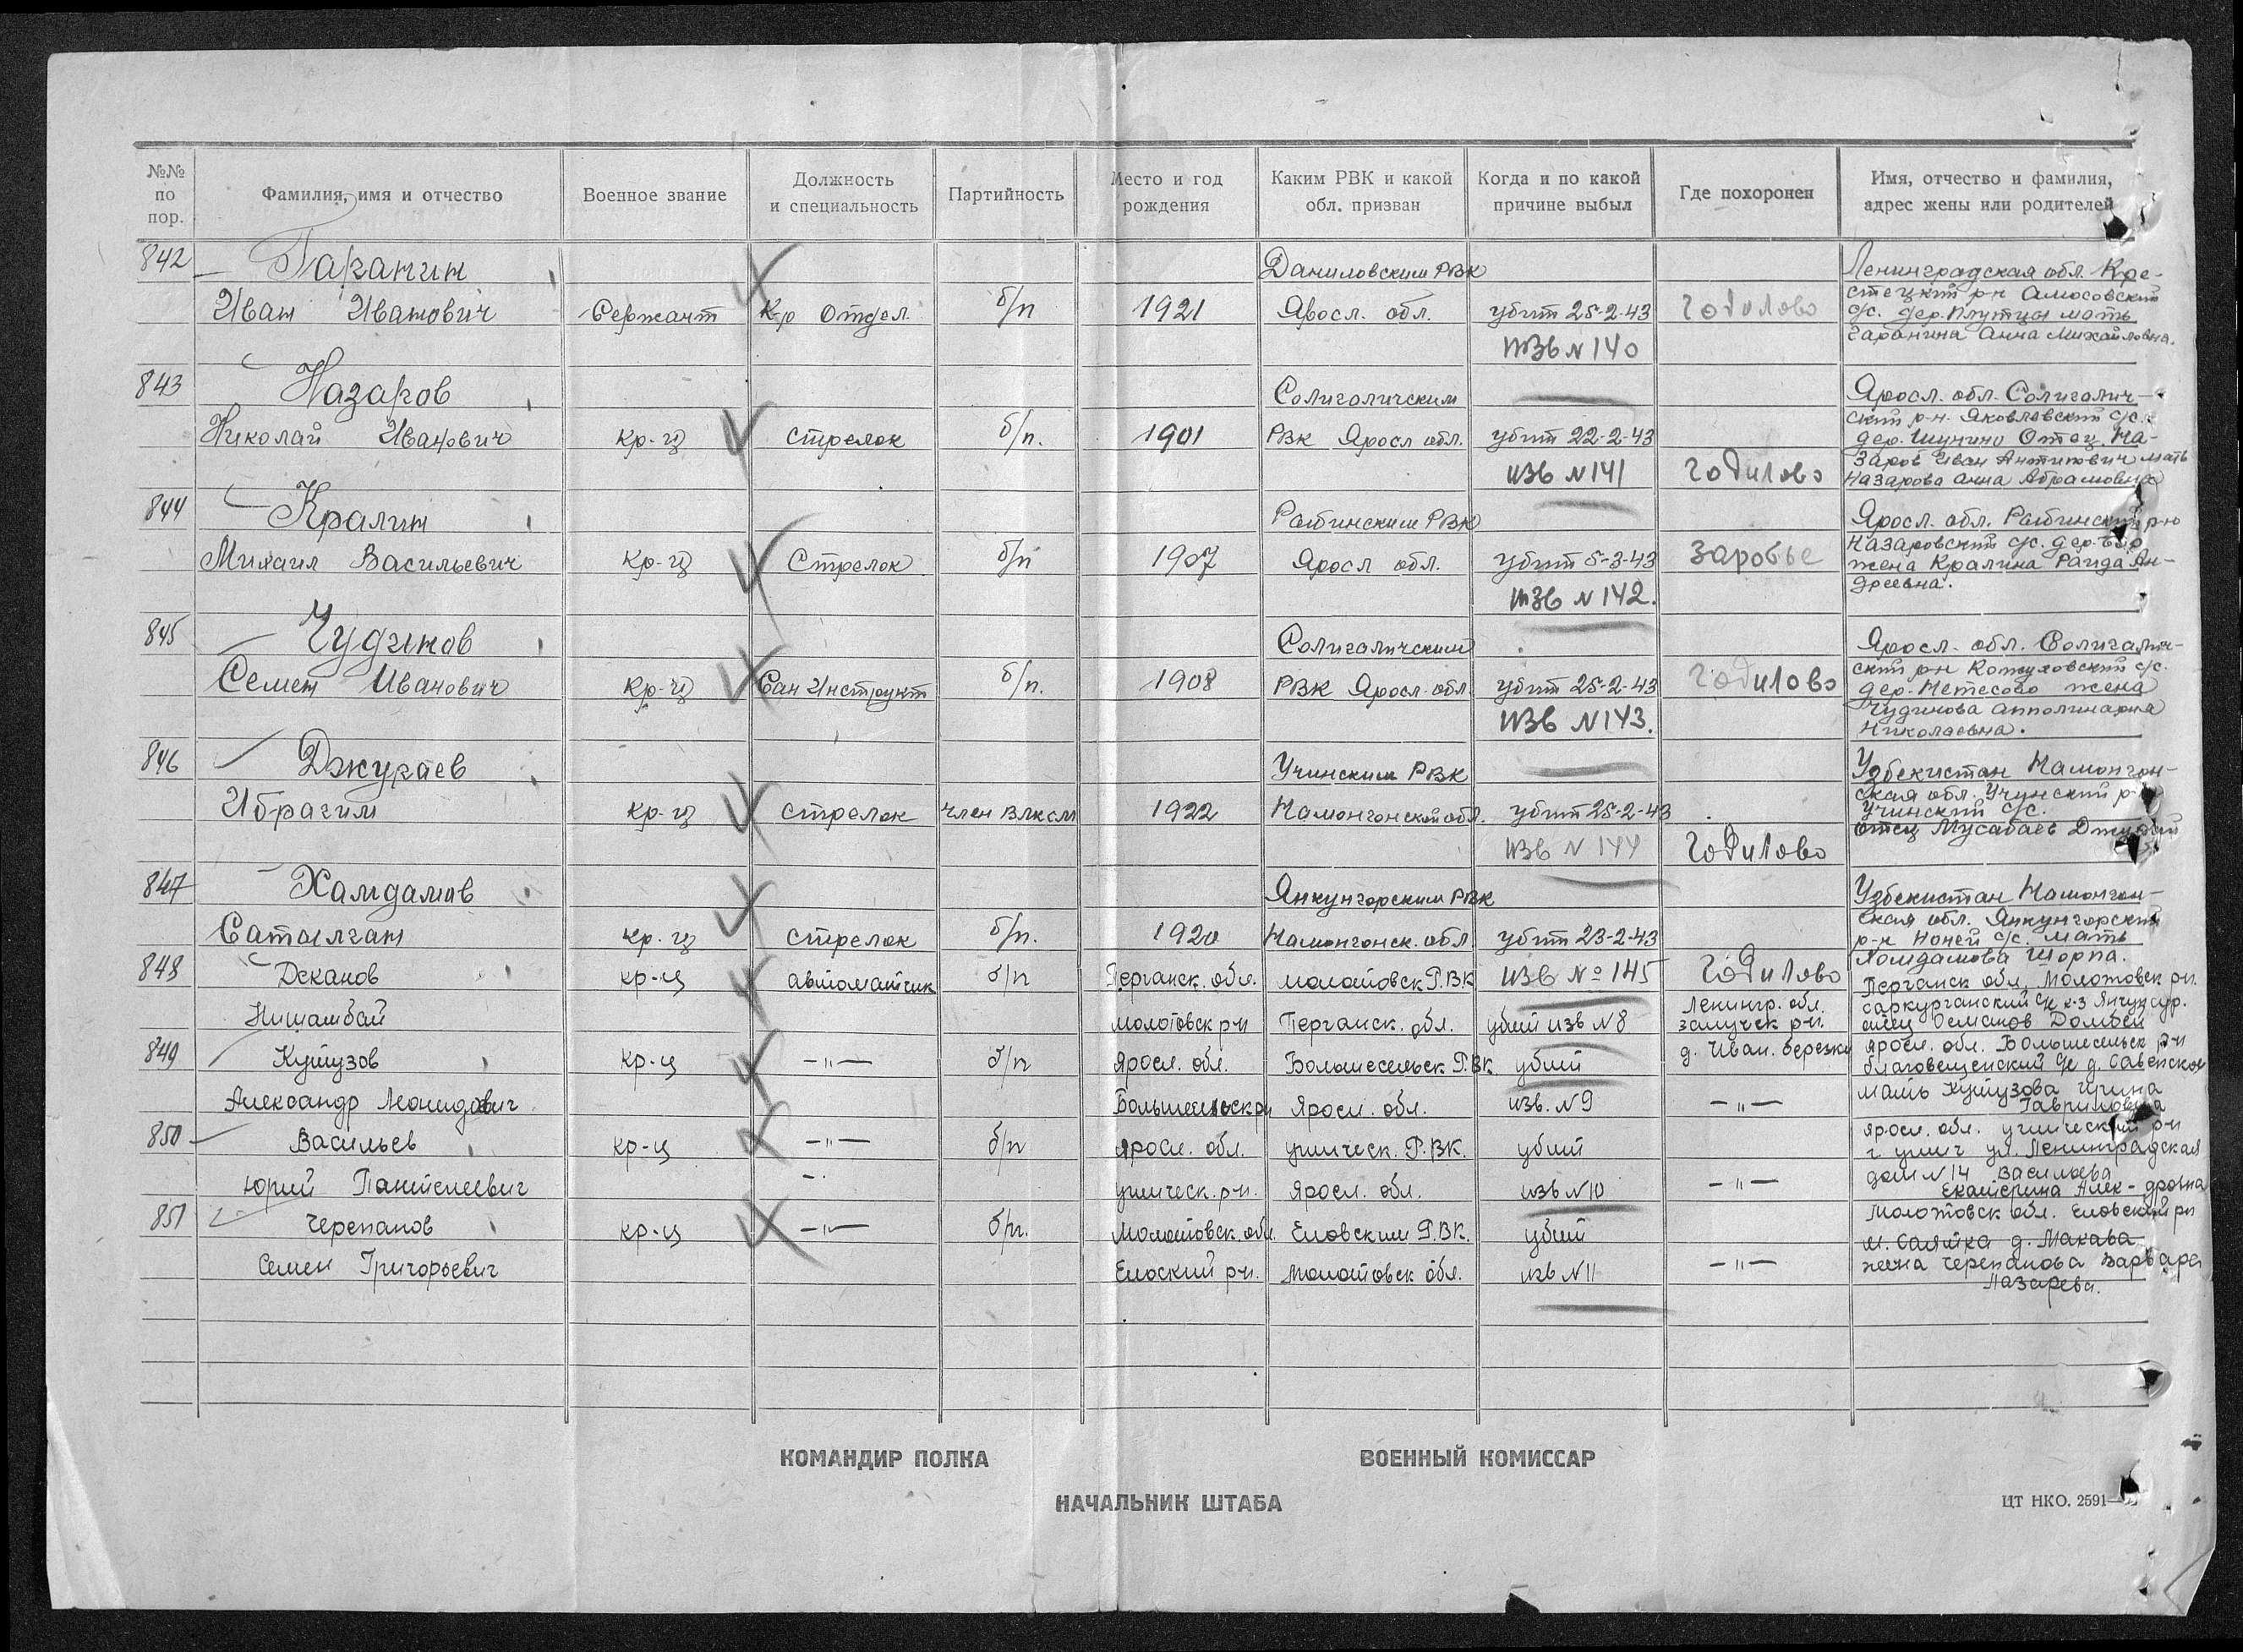 №№ по пор.
Фамилия, имя и отчество
Военное звание
Должность и специальность
Партийность
Место и год рождения
Каким РВК и какой обл. призван
Когда и по какой причине выбыл
Где похоронен
Имя, отчество и фамилия, адрес жены или родителей
842 Гаранин Даниловским РВК Ленинградская обл. Кре-
Иван Иванович Сержант К-р Отдел. б/п 1921 Яросл. обл. убит 25-2-43 Годилово стецкий р-н Амосовский
с/с. дер. Плутцы мать
изв N 140 Гаранина Анна Михайловна.
843 Назаров Солигаличским Яросл. обл. Солигалич-
ский р-н. Яковлевский с/с.
Николай Иванович кр-ц стрелок б/п. 1901 РВК Яросл обл. убит 22-2-43 дер. Шунино Отец На-
заров Иван Антипович мать
изв N 141 Годилово Назарова Анна Абрамовна
844 Кралин Рыбинским РВК Яросл. обл. Рыбинский р-н
Назаровский с/с. дер.
Михаил Васильевич Кр-ц Стрелок б/п 1907 Яросл обл. убит 5-3-43 Заробье жена Кралина Раида Ан-
дреевна.
изв N 142.
845 Чудинов Солигаличский Яросл. обл. Солигалич-
ский р-н Котуловский с/с.
Семен Иванович Кр-ц Сан Инструкт б/п. 1908 РВК Яросл. обл убит 25-2-43 Годилово дер. Нетесово жена
Чудинова Апполинария
изв N 143. Николаевна.
846 Джураев Учинским РВК Узбекистан Намонгон-
ская обл. Учунский р-
Ибрагим кр-ц стрелок член ВЛКСМ 1922 Намонгонской обл. убит 25-2-43 Учинский с/с.
отец Мусабаев
изв N 144 Годилово
847 Хамдамов Янкунгорским РВК Узбекистан Намонгон-
ская обл. Янкунгорский
Саталган кр-ц стрелок б/п. 1920 Намонгонск. обл убит 23-2-43 р-н Ноней с/с. мать
Хомдамова Шорпа.
848 Деканов кр-ц автоматчик б/п Ферганск. обл. молотовск Р.ВК изв № 145 Годилово Ферганск обл. Молотовск р-н.
Нишамбай молотовск р-н Ферганск. обл. убит изв N 8 Ленингр. обл. залучск р-н.
саркурганский с/с к-з
отец Османов
849 Кутузов кр-ц —"— б/п Яросл. обл. Большесельск Р.ВК убит д. Иван. березки Яросл. обл. Большесельск р-н
благовещенский с/с д. Савенское
Александр Леонидович Большесельск р-н Яросл. обл. изв. N 9 —"— мать Кутузова Ирина
Гавриловна
850 Васильев кр-ц —"— б/п Яросл. обл. угличск. Р.ВК. убит Яросл. обл. угличский р-н
г углич ул. Ленинградская
Юрий Пантелеевич угличск. р-н. Яросл. обл. изв N 10 —"— дом N 14 Васильева
Екатерина Алек-дровна
851 Черепанов кр-ц —"— б/п. Молотовск. обл. Еловским Р.ВК. убит Молотовск обл. Еловский р-н
д. Макава
Семен Григорьевич Елоский р-н. Молотовск обл. изв N 11 —"— жена Черепанова Варвара
Лазарева.
КОМАНДИР ПОЛКА
ВОЕННЫЙ КОМИССАР
НАЧАЛЬНИК ШТАБА
ЦТ НКО. 2591—